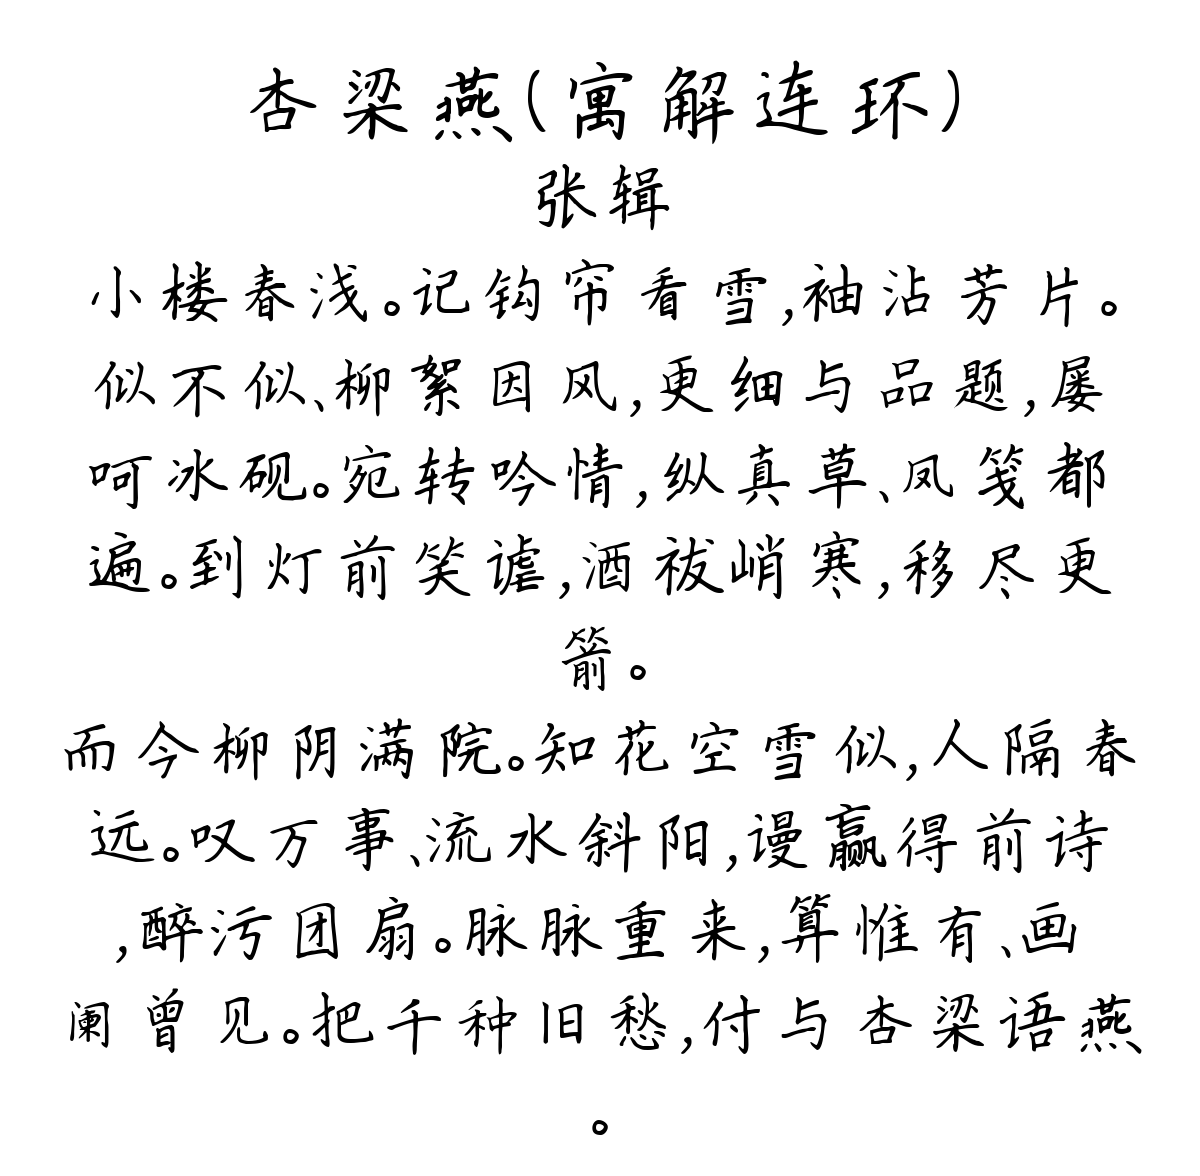 杏梁燕(寓解连环)
张辑
小楼春浅。记钩帘看雪,袖沾芳片。
似不似、柳絮因风,更细与品题,屡
呵冰砚。宛转吟情,纵真草、凤笺都
遍。到灯前笑谑,酒袚峭寒,移尽更
箭。
而今柳阴满院。知花空雪似,人隔春
远。叹万事、流水斜阳,谩赢得前诗
,醉污团扇。脉脉重来,算惟有、画
阑曾见。把千种旧愁,付与杏梁语燕
。